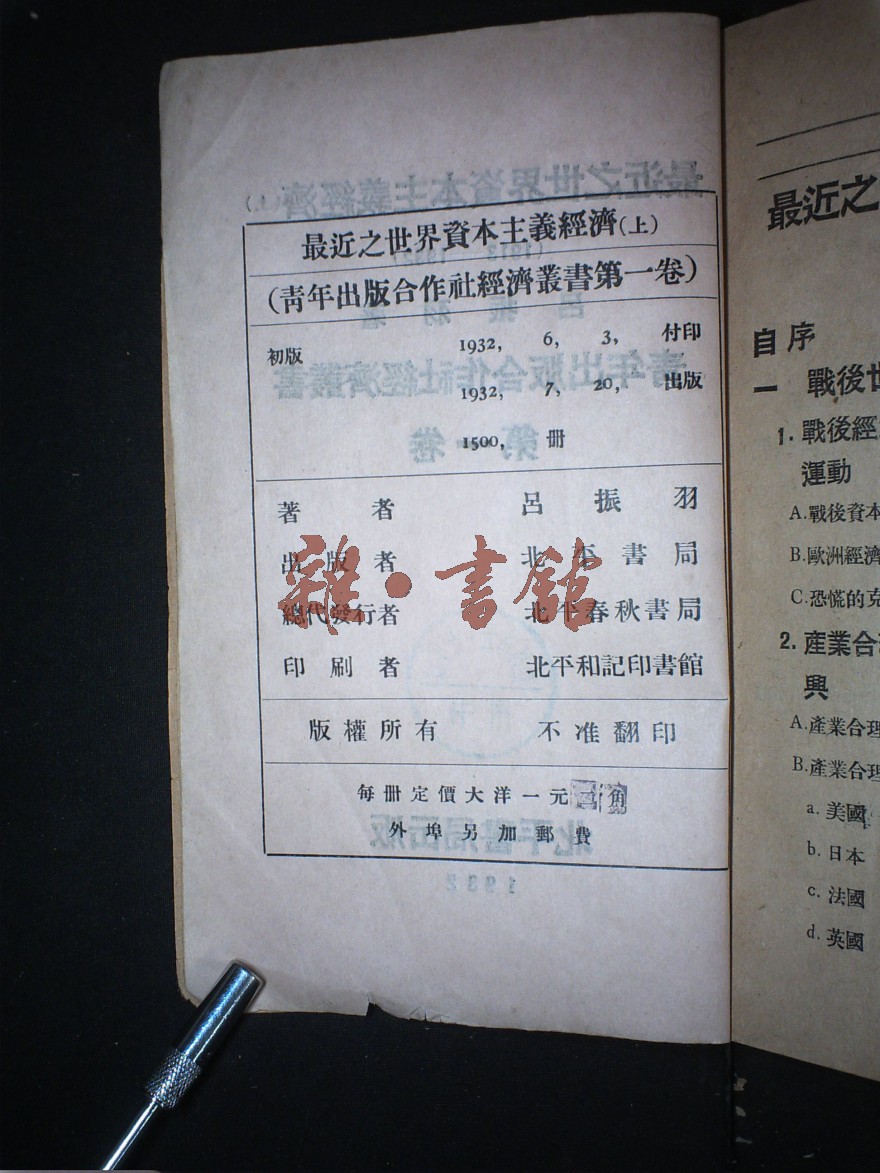 最近之世界資本主義經濟(上)
(靑年出版合作社經濟叢書第一卷)
初版 1932, 6, 3, 付印
1932, 7, 20, 出版
1500, 册
著者 呂振羽
出版者 北平書局
總代發行者 北平春秋書局
印刷者 北平和記印書館
版權所有 不准翻印
每册定價大洋一元 角
外埠另加郵費
雜·書館
最近之
自序
一 戰後世
1. 戰後經
運動
A. 戰後資本
B. 歐洲經濟
C. 恐慌的克
2. 産業合
興
A. 產業合理
B. 產業合理
a. 美國
b. 日本
c. 法國
d. 英國